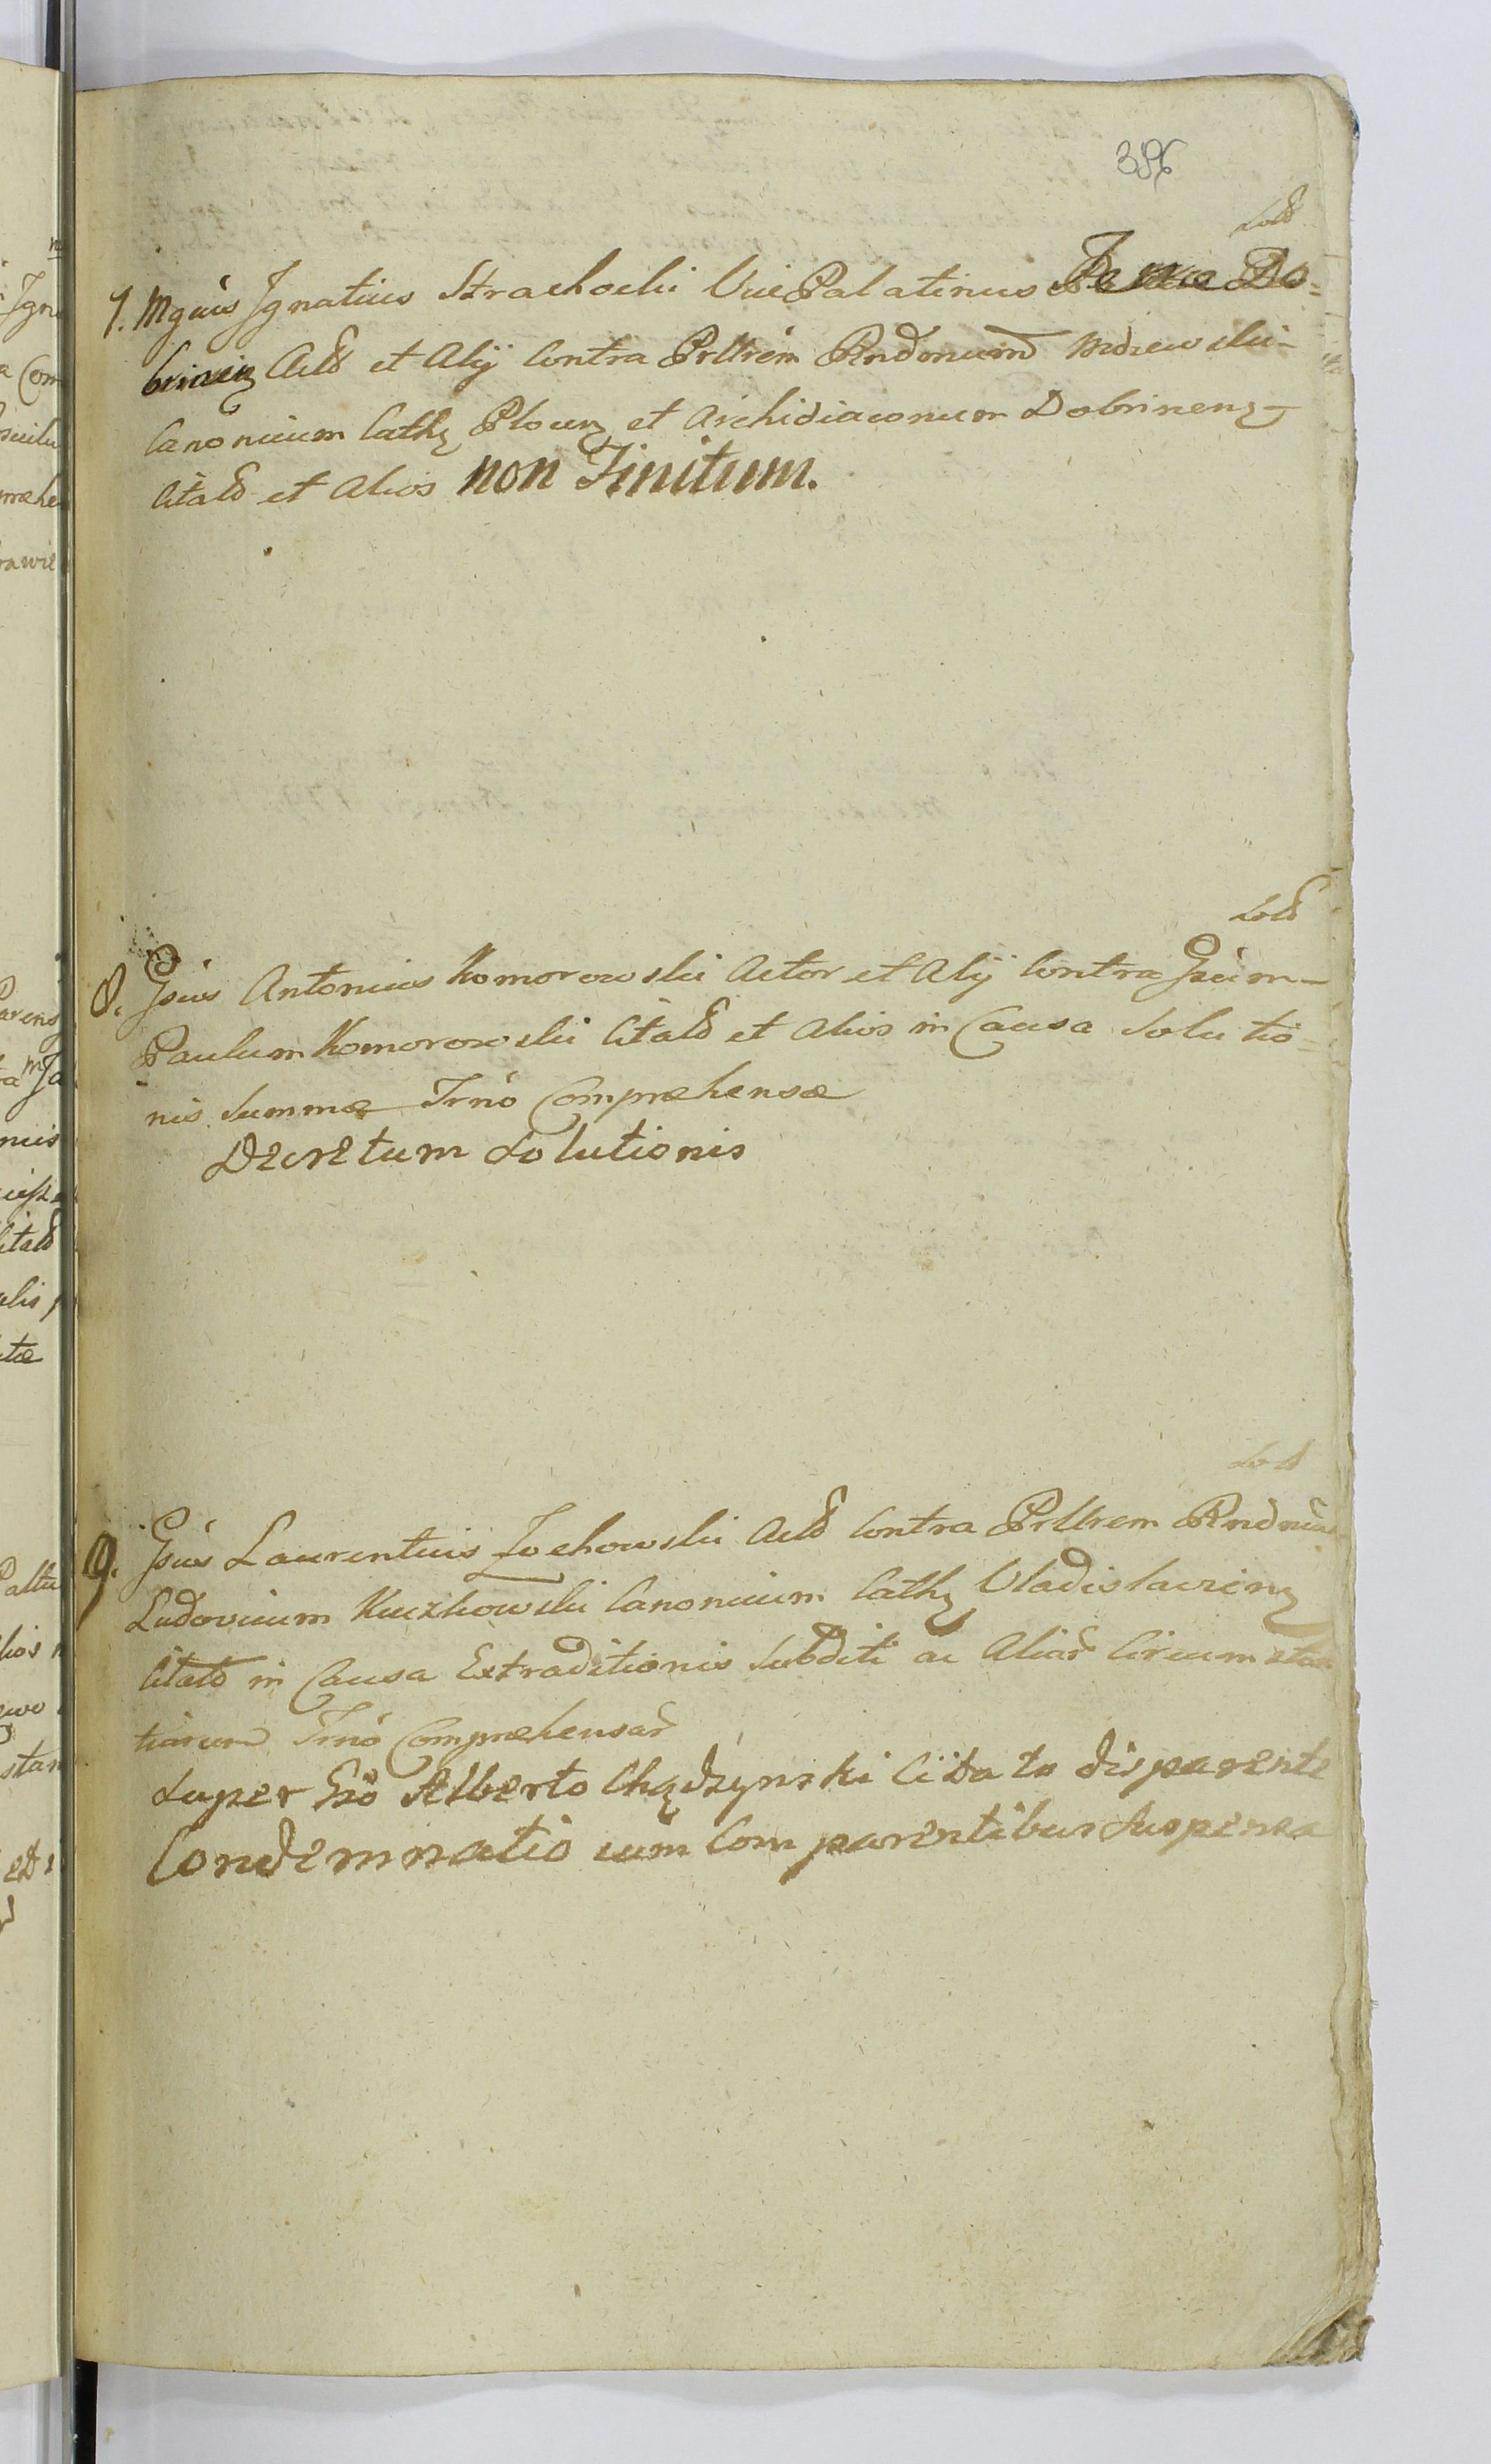 386
Sold
7. Mgcus Ignatius Strachocki VicePalatinus Terrae Do=
brinen Actd et Alij Contra Prltrem Rndmum Mdzewski
Canonicum Cathz Plocen et Archidiaconum Dobrinen
Citatd et Alios non Finitum.
Sold
8. Gsus Antonius Komorowski Actor et Alij Contra Gsum
Paulum Komorowski Citatd et Alios in Causa Solutio=
nis Summæ Trno Comprehensæ
Decretum Solutionis
Sold
9. Gsus Laurentius Żochowski Actd Contra Prltrem Rndmum
Ludovicum Kuczkowski Canonicum Cathz Vladislavien
Citatd in Causa Extraditionis Subditi ac Aliar Circumstan
tiarum Trno Comprehensar
Super Gso Alberto Chądzynski Citato disparente
Condemnatio cum Comparentibus Suspensa